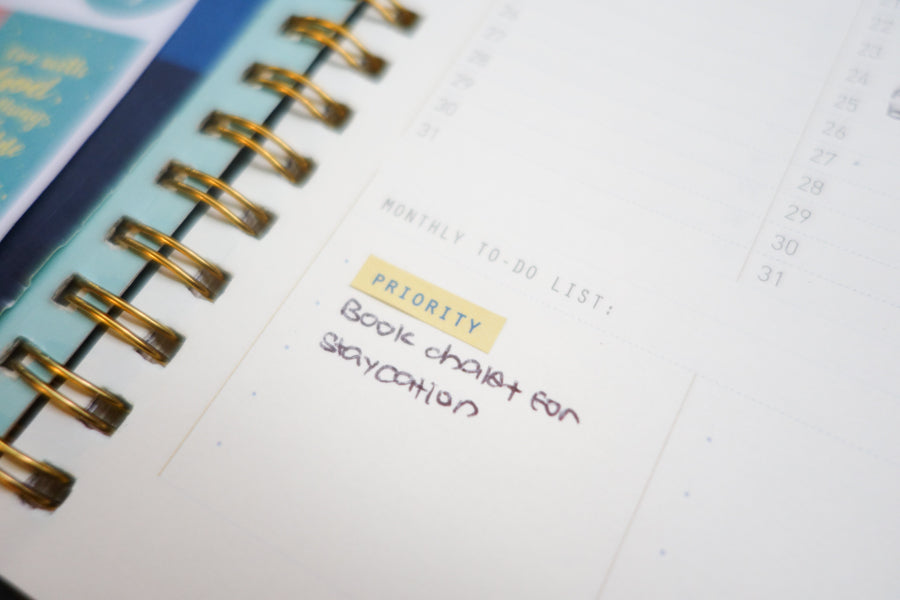 You with
good
26
27
28
29
30
31
22
23
24
25
26
27
28
29
30
31
MONTHLY TO-DO LIST:
PRIORITY
Book chalet for
staycation